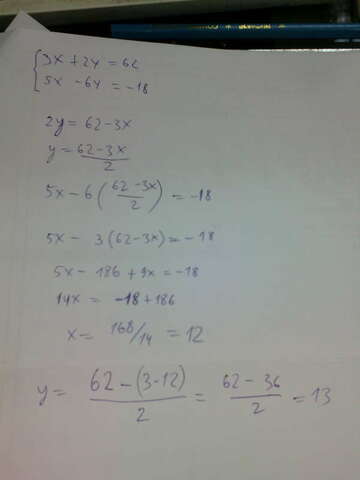 3x + 2y = 62
5x - 6y = -18
2y = 62 - 3x
y = \frac{62 - 3x}{2}
5x - 6 ( \frac{62 - 3x}{2} ) = -18
5x - 3 (62 - 3x) = -18
5x - 186 + 9x = -18
14x = -18 + 186
x = 168/14 = 12
y = \frac{62 - (3 - 12)}{2} = \frac{62 - 36}{2} = 13